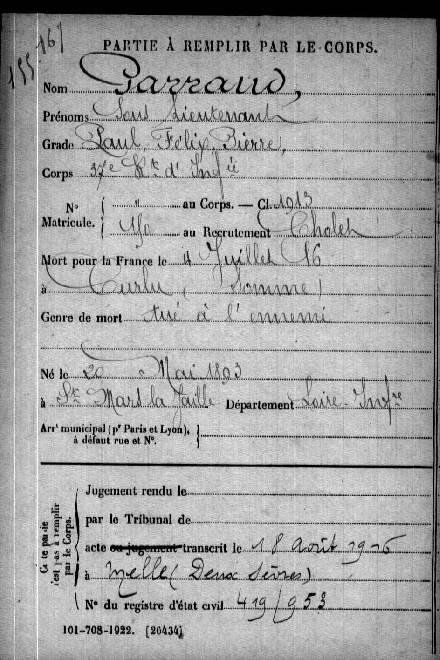 155 167
PARTIE À REMPLIR PAR LE CORPS.
Nom Parraud,
Prénoms Sous Lieutenant
Grade Paul, Félix, Pierre,
Corps 37e Rt d'Infie
N° Matricule. { " au Corps. — Cl. 1913
au Recrutement Cholet
Mort pour la France le 4 Juillet 16
à Curlu, (Somme)
Genre de mort tué à l'ennemi
Né le 20 Mai 1893
à St Mars la Jaille Département Loire-Infre
Arrt municipal (pr Paris et Lyon), à défaut rue et N°. {
Cette partie n'est pas à remplir par le Corps.
Jugement rendu le
par le Tribunal de
acte ou jugement transcrit le 18 août 1916
à Melle (Deux Sèvres)
N° du registre d'état civil 419/953
101-708-1922. [26434]